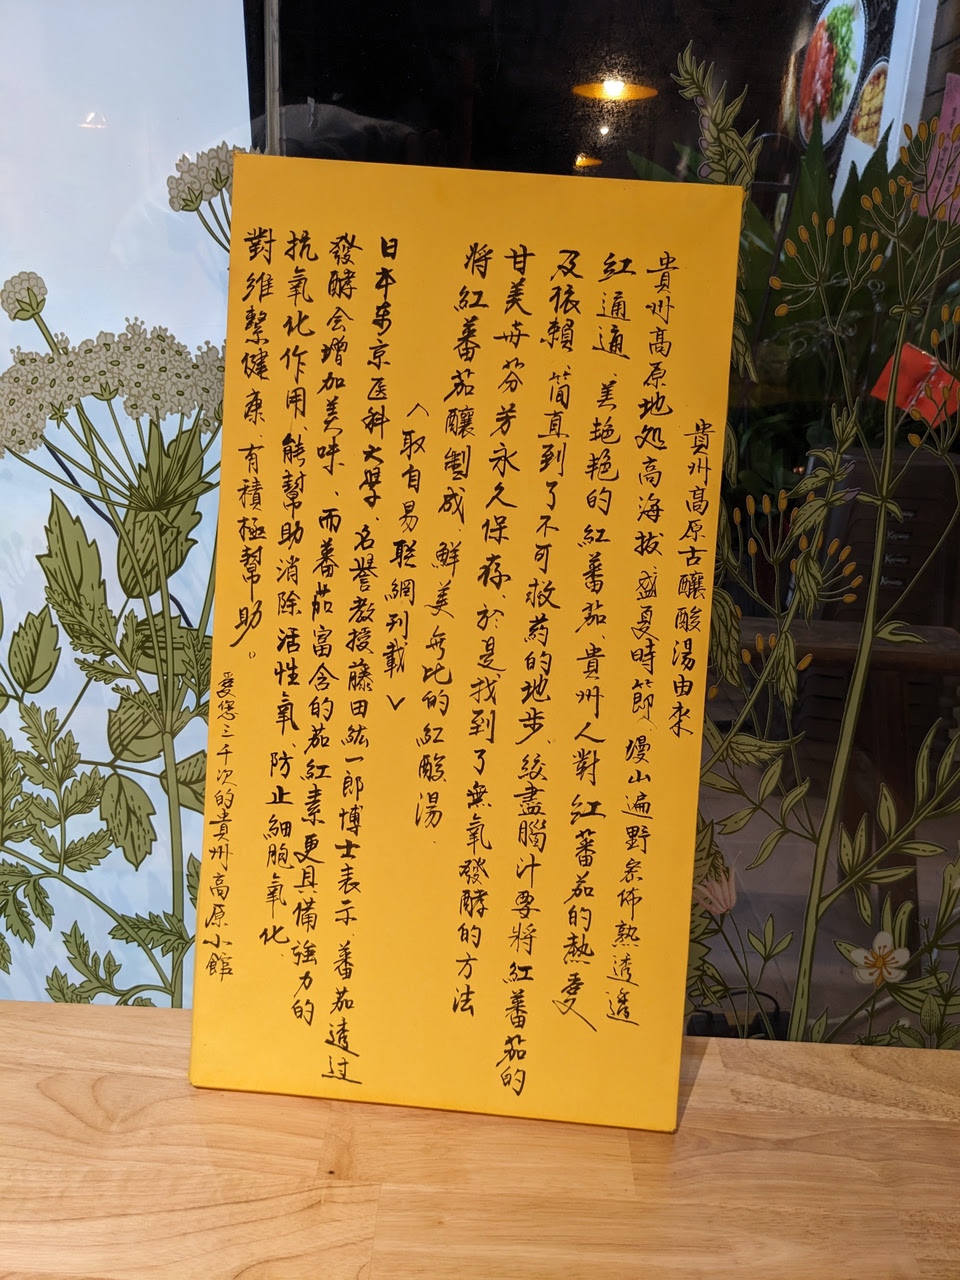 貴州高原古釀酸湯由來
貴州高原地処高海拔、盛夏時節、墁山遍野条佈熟透透
紅通通、美艳艳的紅蕃茄、貴州人對紅蕃茄的熱愛
及依賴、简直到了不可救药的地步、绞盡腦汁要將紅蕃茄的
甘美與芬芳永久保存、於是找到了無氧發酵的方法
將紅蕃茄釀製成、鮮美無比的紅酸湯.
<取自易聯網刊載>
日本東京医科大學、名譽教授藤田紘一郎博士表示、蕃茄透过
發酵会增加美味、而蕃茄富含的茄紅素更具備強力的
抗氧化作用、能幫助消除活性氧、防止細胞氧化、
對維繫健康、有積極幫助。
愛您三千次的貴州高原小館